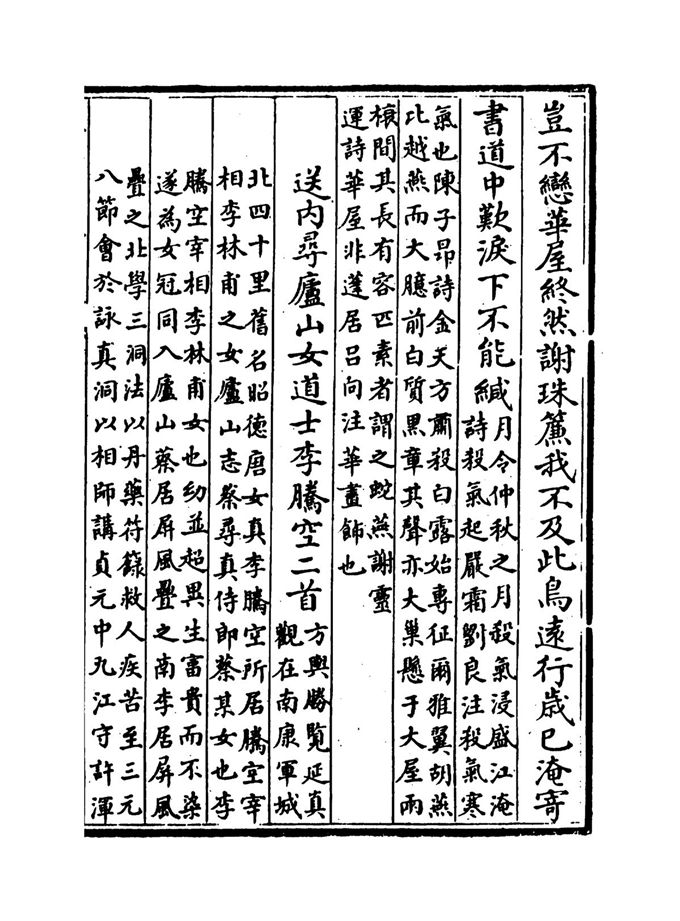 豈不戀華屋終然謝珠簾我不及此鳥遠行歲已淹寄
書道中歎淚下不能緘
月令仲秋之月殺氣浸盛江淹
詩殺氣起嚴霜劉良注殺氣寒
氣也陳子昻詩金天方肅殺白露始專征爾雅翼胡燕
比越燕而大臆前白質黑章其聲亦大巢懸于大屋兩
榱間其長有容匹素者謂之蛇燕謝靈
運詩華屋非蓬居吕向注華畫飾也
送内尋廬山女道士李騰空二首
方輿勝覽延真
觀在南康軍城
北四十里舊名昭德唐女真李騰空所居騰空宰
相李林甫之女廬山志蔡尋真侍郎蔡某女也李
騰空宰相李林甫女也幼並超異生富貴而不染
遂為女冠同入廬山蔡居屏風疊之南李居屏風
疊之北學三洞法以丹藥符籙救人疾苦至三元
八節會於詠真洞以相師講貞元中九江守許渾